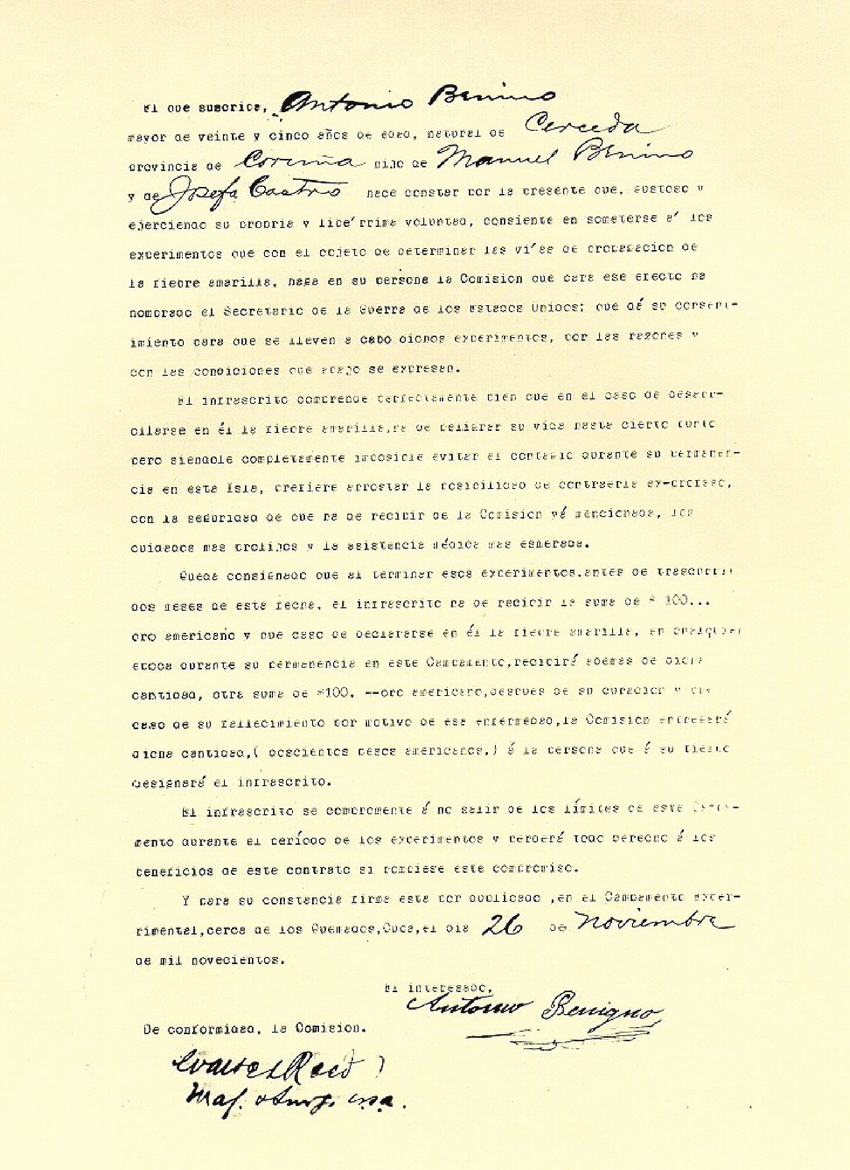 El que suscribe, Antonio Benino
mayor de veinte y cinco años de edad, natural de Cerceda
provincia de Coruña hijo de Manuel Benino
y de Josefa Castro hace constar por la presente que, gustoso y
ejerciendo su propria y libe'rrima voluntad, consiente en someterse a' los
experimentos que con el objeto de determinar las vi'as de propagacion de
la fiebre amarilla, haga en su persona la Comision que para ese efecto ha
nombrado el Secretario de la Guerra de los Estados Unidos: que dá su consent-
imiento para que se lleven a cabo dichos experimentos, por las razones y
con las condiciones que abajo se expresan.
El infrascrito comprende perfectamente bien que en el caso de desarr-
ollarse en él la fiebre amarilla,
pero siendole completamente imposible evitar el contagio durante su permanen-
cia en esta Isla, prefiere arrostar la posibilidad de contraerla ex-profeso,
con la seguridad de que ha de recibir de la Comision yá mencionada, los
cuidados mas prolijos y la asistencia médica mas esmerada.
Queda consignado que al terminar esos experimentos,antes de
dos meses de esta fecha, el infrascrito ha de recibir la suma de $ 100...
oro americano y que caso de declararse en él la fiebre amarilla, en cualquier
epoca durante su permanencia en este Campamento,recibirá ademas de dicha
cantidad, otra suma de $100. --oro americano,despues de su curacion y
caso de su fallecimiento por motivo de esa enfermedad,la Comision entregará
dicha cantidad,( doscientos pesos americanos,) á la persona que á su
designará el infrascrito.
El infrascrito se compromente á no salir de los límites de este
mento durante el período de los experimentos y perderá todo derecho á los
beneficios de este contrato si rompiese este compromiso.
Y para su constancia firma esta por duplicado ,en el Campamento exper-
rimental,cerca de los Quemados,Cuba,el dia 26 de Noviembre
de mil novecientos.
El interesado,
Antonio Benigno
De conformidad, la Comision.
Walter Reed
Maj. & Surg. USA.